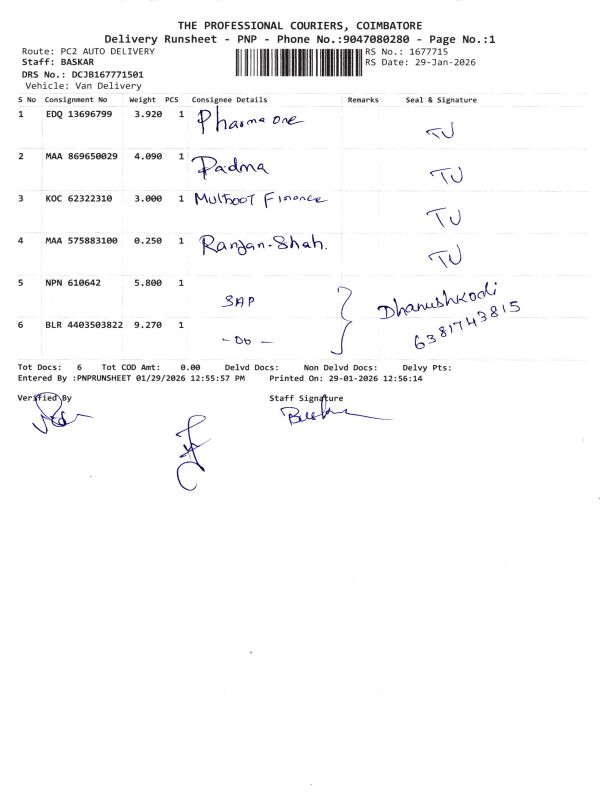 THE PROFESSIONAL COURIERS, COIMBATORE
Delivery Runsheet - PNP - Phone No.:9047080280 - Page No.:1
Route: PC2 AUTO DELIVERY RS No.: 1677715
Staff: BASKAR RS Date: 29-Jan-2026
DRS No.: DCJB167771501
Vehicle: Van Delivery
S No Consignment No Weight PCS Consignee Details Remarks Seal & Signature
1 EDQ 13696799 3.920 1 Pharma one TU
2 MAA 869650029 4.090 1 Padma TU
3 KOC 62322310 3.000 1 Muthoot Finance TU
4 MAA 575883100 0.250 1 Ranjan-Shah. TU
5 NPN 610642 5.800 1 SAP Dhanushkodi
6 BLR 4403503822 9.270 1 -Do- 6381743815
Tot Docs: 6 Tot COD Amt: 0.00 Delvd Docs: Non Delvd Docs: Delvy Pts:
Entered By :PNPRUNSHEET 01/29/2026 12:55:57 PM Printed On: 29-01-2026 12:56:14
Verified By Staff Signature